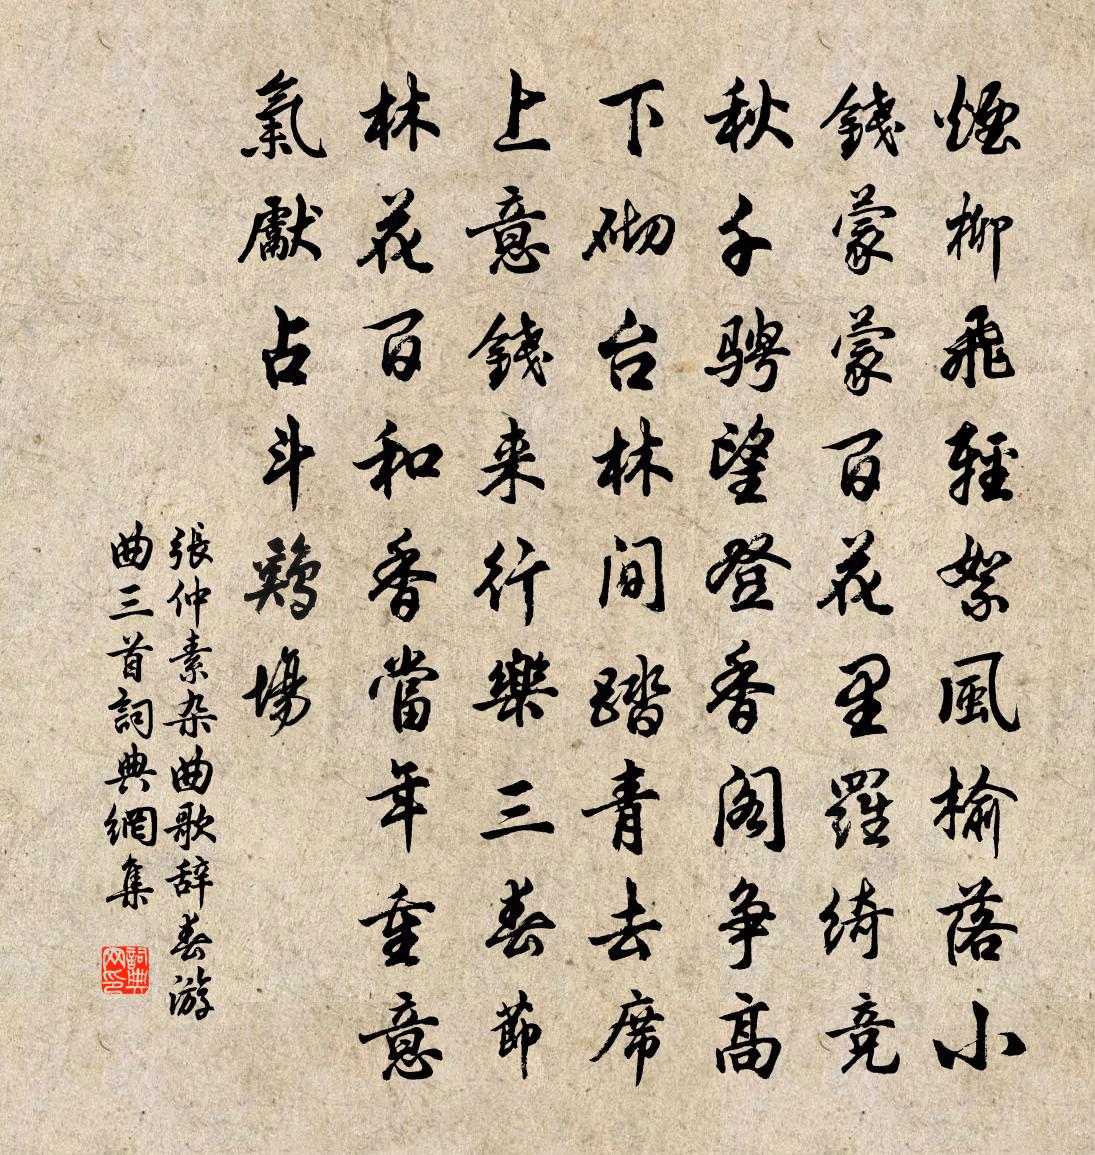 煙柳飛輕絮風榆落小
錢蒙蒙百花里羅綺競
秋千騁望登香閣争高
下砌台林間踏青去席
上意錢来行樂三春節
林花百和香當年重意
氣獻占斗鷄場
張仲素杂曲歌辞春游
曲三首詞典網集
詞典网印